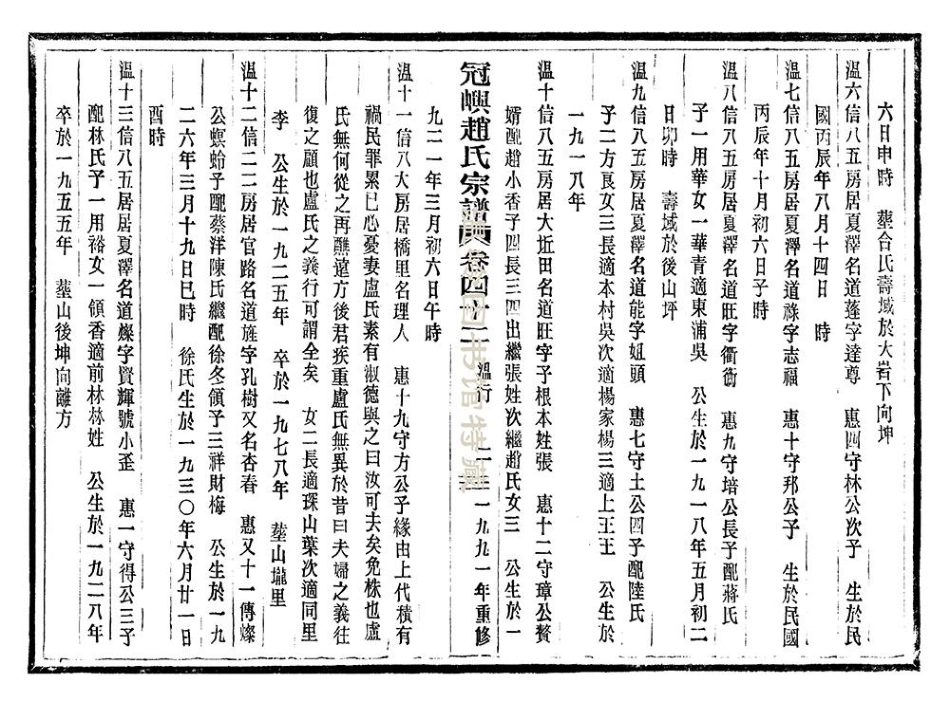 六日申時　塟合氏壽域於大岩下向坤
溫六信八五房居夏澤名道蓬字達尊　惠四守林公次子　生於民
國丙辰年八月十四日　時
溫七信八五房居夏澤名道祿字志福　惠十守邦公子　生於民國
丙辰年十月初六日子時
溫八信八五房居夏澤名道旺字衢衝　惠九守培公長子配蔣氏
子一用華女一華青適東浦吳　公生於一九一八年五月初二
日卯時　壽域於後山坪
溫九信八五房居夏澤名道能字姐頭　惠七守土公四子配陸氏
子二方良女三長適本村吳次適楊家楊三適上王王　公生於
一九一八年
溫十信八五房居大坵田名道旺字子根本姓張　惠十二守章公贅
婿配趙小香子四長三四出繼張姓次繼趙氏女三　公生於一
九二一年三月初六日午時
冠嶼趙氏宗譜　卷四十二　溫行　二　一九九一年重修
图书馆特藏
溫十一信八大房居橋里名理人　惠十九守方公子緣由上代積有
禍民罪累已心憂妻盧氏素有淑德與之曰汝可去矣免株也盧
氏無何從之再醮遠方後君疾重盧氏無異於昔曰夫婦之義往
復之顧也盧氏之義行可謂全矣　女二長適珠山葉次適同里
李　公生於一九二五年　卒於一九七八年　塟山壠里
溫十二信二二房居官路名道旌字孔樹又名杏春　惠又十一傳燦
公螟蛉子配蔡洋陳氏繼配徐冬領子三祥財梅　公生於一九
二六年三月十九日巳時　徐氏生於一九三〇年六月廿一日
酉時
溫十三信八五房居夏澤名道燦字賢輝號小歪　惠一守得公三子
配林氏子一用裕女一領香適前林林姓　公生於一九二八年
卒於一九五五年　塟山後坤向離方